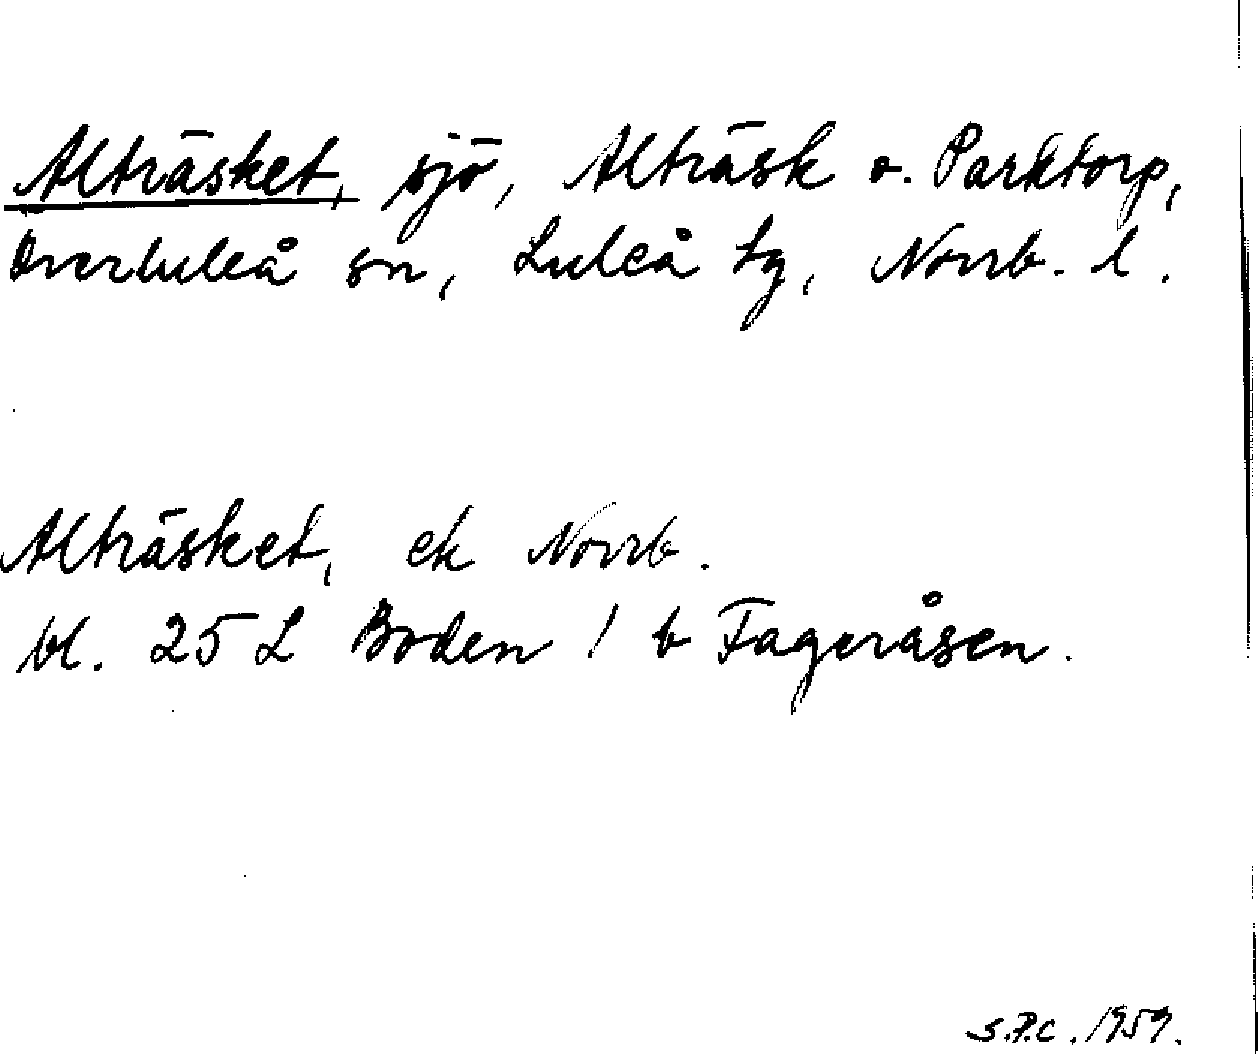 Alträsket, sjö, Alträsk o. Parktorp,
Överluleå sn, Luleå tg, Norrb. l.
Alträsket, ek Norrb.
bl. 25 L Boden / b Fageråsen.
S.P.C. 1959.